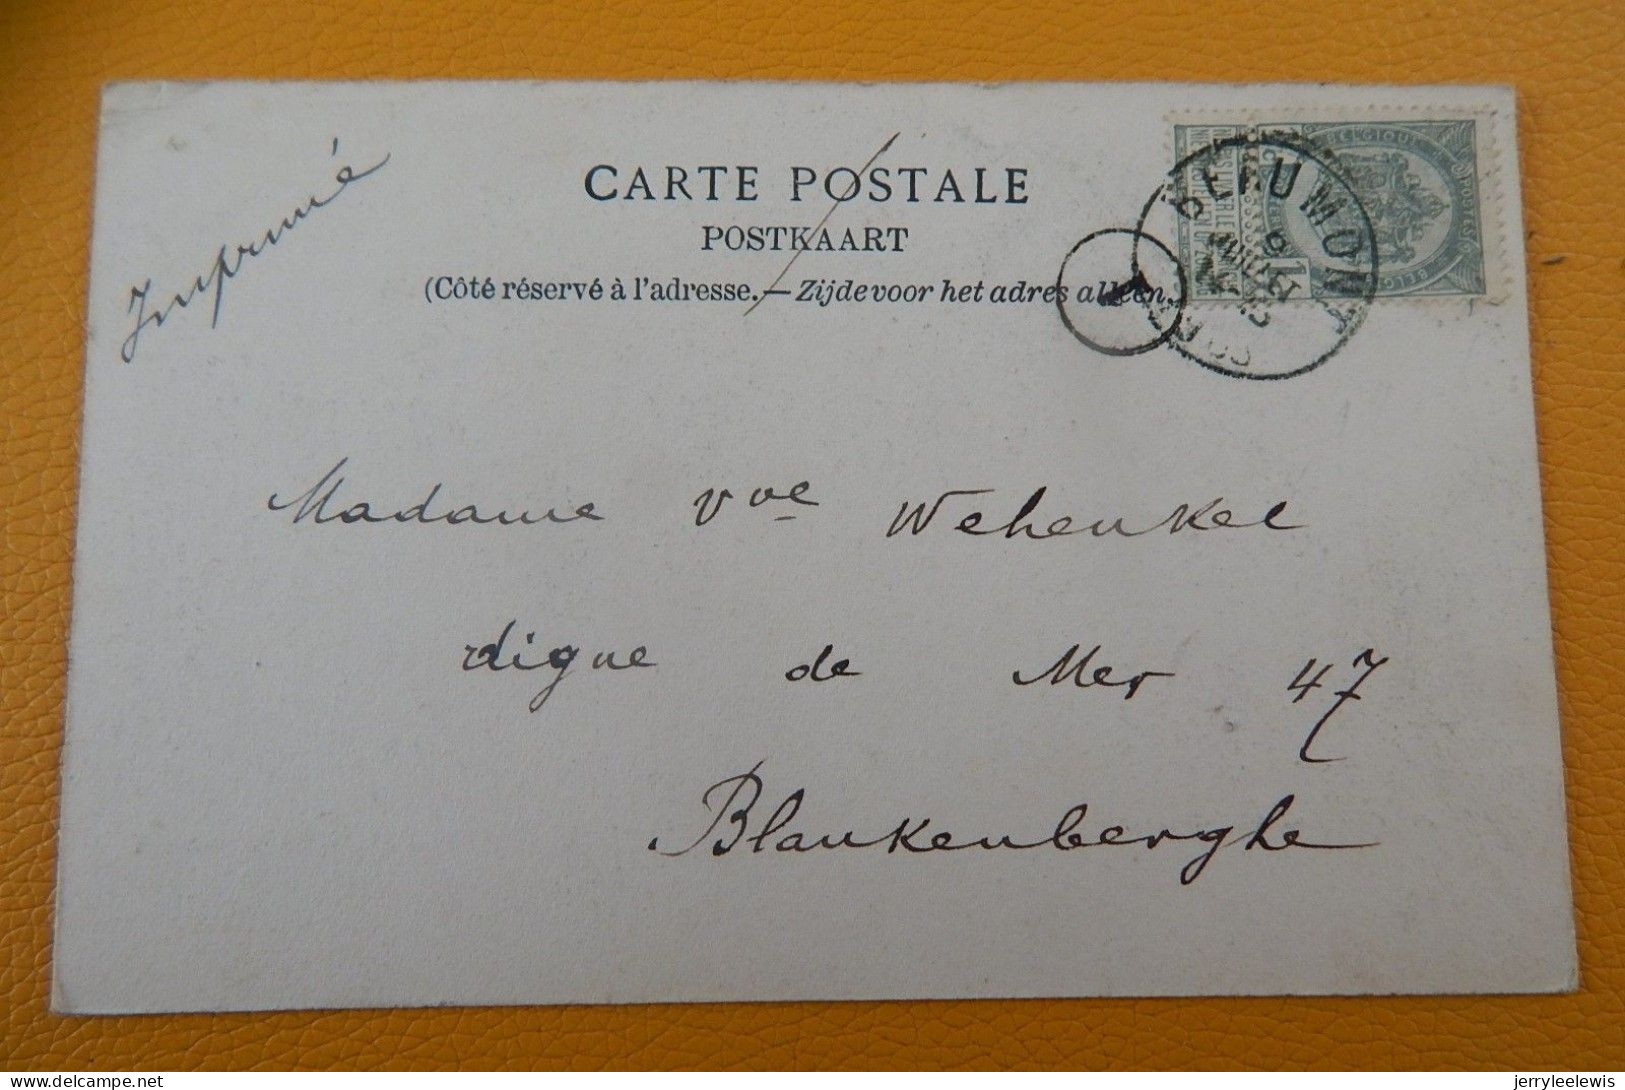 Imprimé
CARTE POSTALE
POSTKAART
(Côté réservé à l'adresse.—Zijde voor het adres alleen.
BELGIQUE
BEAUMONT
Madame Vve Wehenkel
digue de Mer 47
Blankenberghe
jerryleelewis
delcampe.net